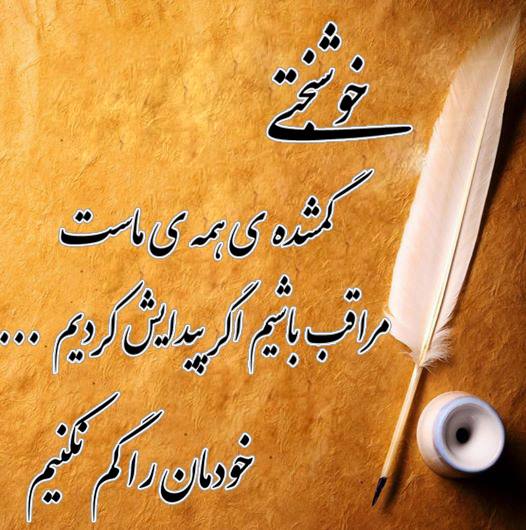 خوشبختی
گمشده ی همه ی ماست
مراقب باشیم اگر پیدایش کردیم ...
خودمان را گم نکنیم